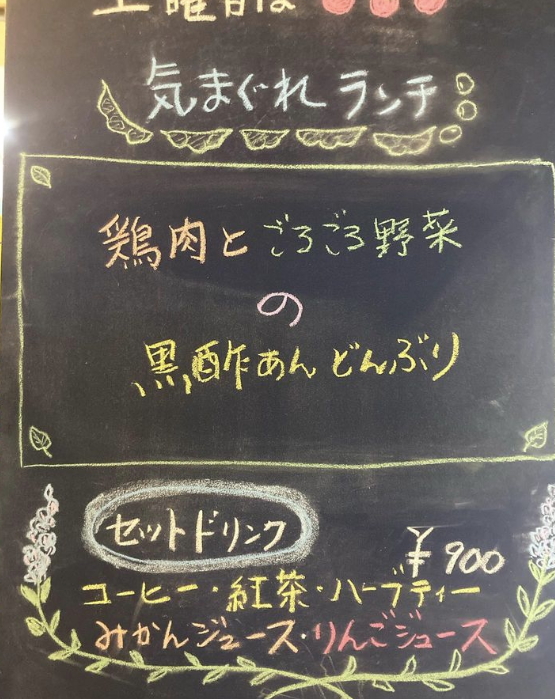 土曜日は
気まぐれランチ
鶏肉とごろごろ野菜
の
黒酢あんどんぶり
セットドリンク
¥900
コーヒー・紅茶・ハーブティー
みかんジュース・りんごジュース